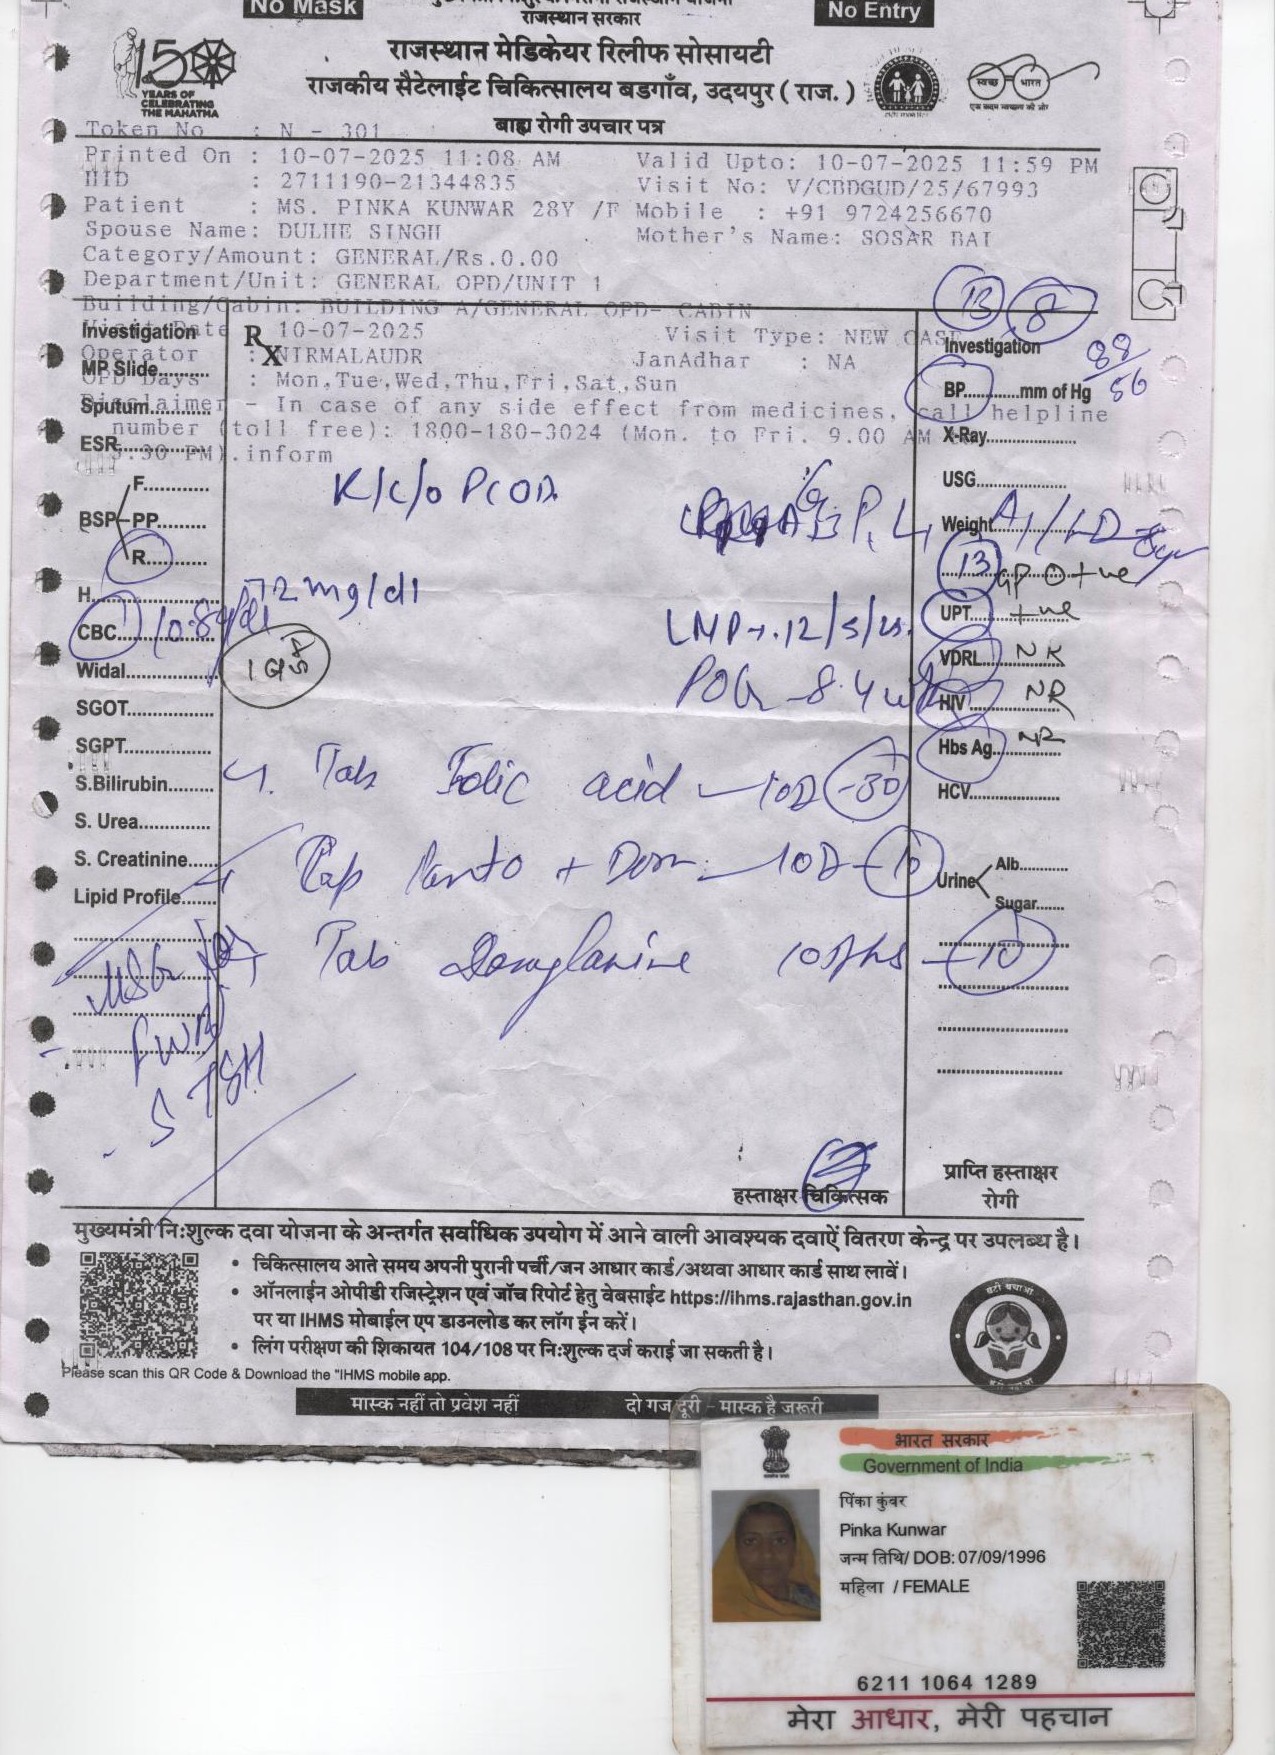 No Mask
No Entry
राजस्थान सरकार
राजस्थान मेडिकेयर रिलीफ सोसायटी
राजकीय सैटेलाईट चिकित्सालय बडगाँव, उदयपुर ( राज. )
बाह्य रोगी उपचार पत्र
150
YEARS OF
CELEBRATING
THE MAHATMA
स्वच्छ भारत
एक कदम स्वच्छता की ओर
Token No : N - 301
Printed On : 10-07-2025 11:08 AM Valid Upto: 10-07-2025 11:59 PM
HID : 2711190-21344835 Visit No: V/CBDGUD/25/67993
Patient : MS. PINKA KUNWAR 28Y /F Mobile : +91 9724256670
Spouse Name: DULHE SINGH Mother's Name: SOSAR BAI
Category/Amount: GENERAL/Rs.0.00
Department/Unit: GENERAL OPD/UNIT 1
Building/Cabin: BUILDING A/GENERAL OPD- CABIN
Visit Date : 10-07-2025 Visit Type: NEW CASE
Operator : NIRMALAUDR JanAdhar : NA
OPD Days : Mon,Tue,Wed,Thu,Fri,Sat,Sun
Disclaimer - In case of any side effect from medicines, call helpline
number (toll free): 1800-180-3024 (Mon. to Fri. 9.00 AM
5.30 PM).inform
Rx
Investigation
MP Slide
Sputum
ESR
F
BSP PP
R
72 mg/dl
H
CBC 10.8 g/dl
Widal
SGOT
SGPT
S.Bilirubin
S. Urea
S. Creatinine
Lipid Profile
USG
FWB
S TSH
K/c/o PCOD
LMP → 12/5/25.
POG - 8.4 wk
Tab Folic acid - 1OD - 30
Cap Panto + Dom - 1OD - 10
Tab Doxylamine 1OD hs - 10
13 8
Investigation
BP mm of Hg 88/56
X-Ray
USG
Weight
13 GP O +ve
UPT +ve
VDRL NR
HIV NR
Hbs Ag NR
HCV
Urine Alb
Sugar
हस्ताक्षर चिकित्सक
प्राप्ति हस्ताक्षर
रोगी
मुख्यमंत्री निःशुल्क दवा योजना के अन्तर्गत सर्वाधिक उपयोग में आने वाली आवश्यक दवाऐं वितरण केन्द्र पर उपलब्ध है।
• चिकित्सालय आते समय अपनी पुरानी पर्ची/जन आधार कार्ड/अथवा आधार कार्ड साथ लावें।
• ऑनलाईन ओपीडी रजिस्ट्रेशन एवं जॉच रिपोर्ट हेतु वेबसाईट https://ihms.rajasthan.gov.in
पर या IHMS मोबाईल एप डाउनलोड कर लॉग ईन करें।
• लिंग परीक्षण की शिकायत 104/108 पर निःशुल्क दर्ज कराई जा सकती है।
Please scan this QR Code & Download the "IHMS mobile app.
मास्क नहीं तो प्रवेश नहीं दो गज दूरी - मास्क है जरूरी
भारत सरकार
Government of India
पिंका कुंवर
Pinka Kunwar
जन्म तिथि/ DOB: 07/09/1996
महिला / FEMALE
6211 1064 1289
मेरा आधार, मेरी पहचान